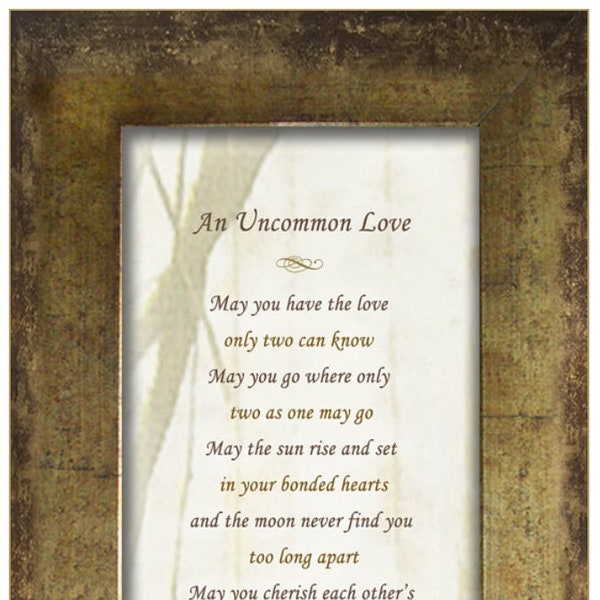 An Uncommon Love
May you have the love
only two can know
May you go where only
two as one may go
May the sun rise and set
in your bonded hearts
and the moon never find you
too long apart
May you cherish each other's